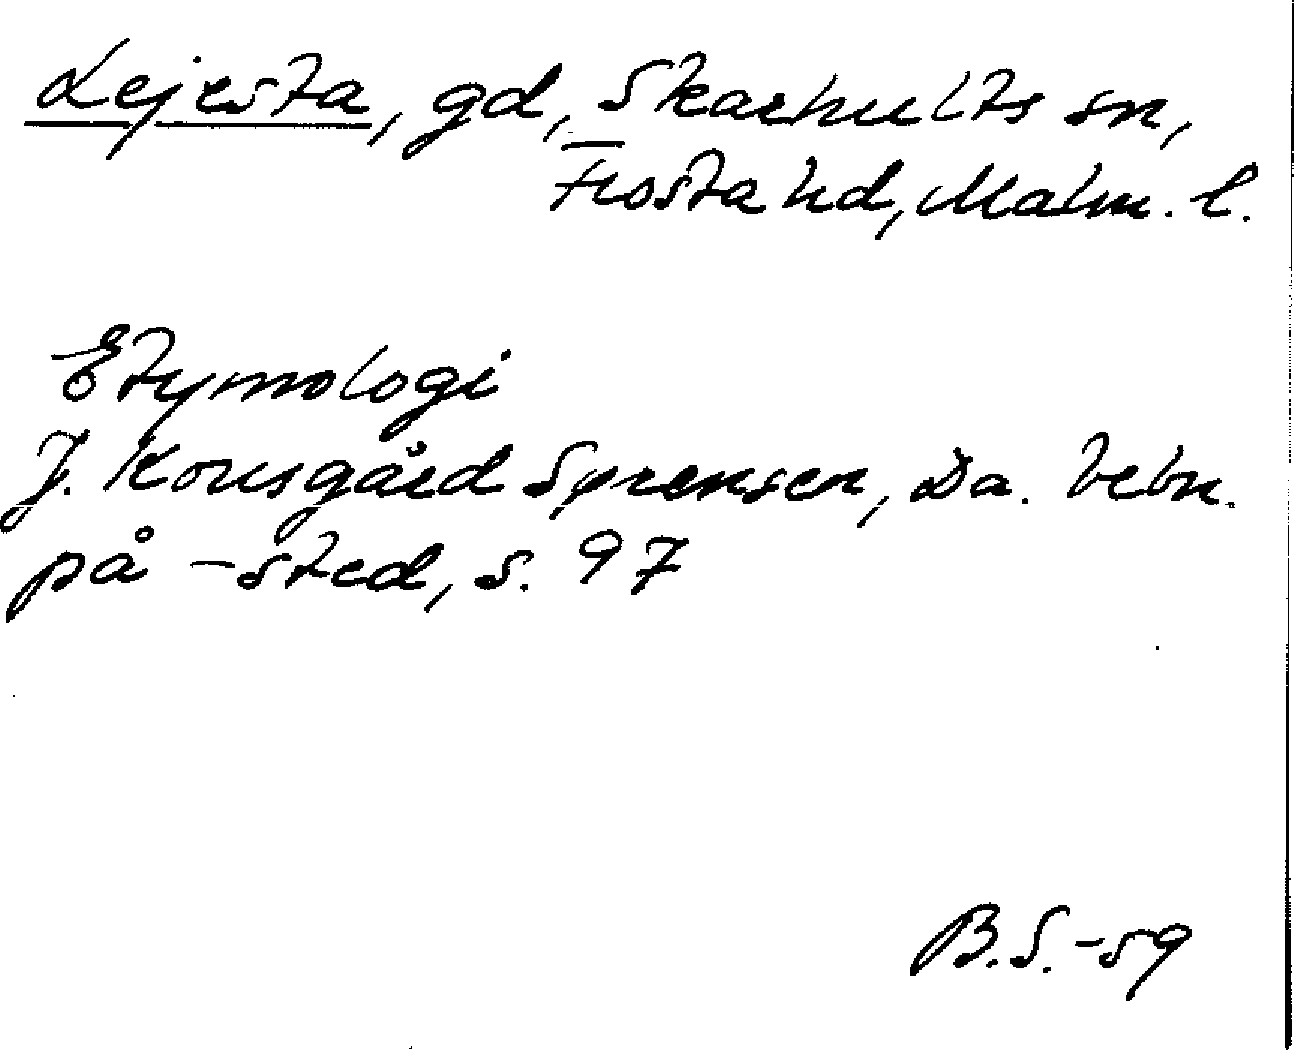 Lejesta, gd, Skarhults sn,
Frosta hd, Malm. l.
Etymologi
J. Kousgård Sørensen, Da. bebn.
på -sted, s. 97
B.S.-59